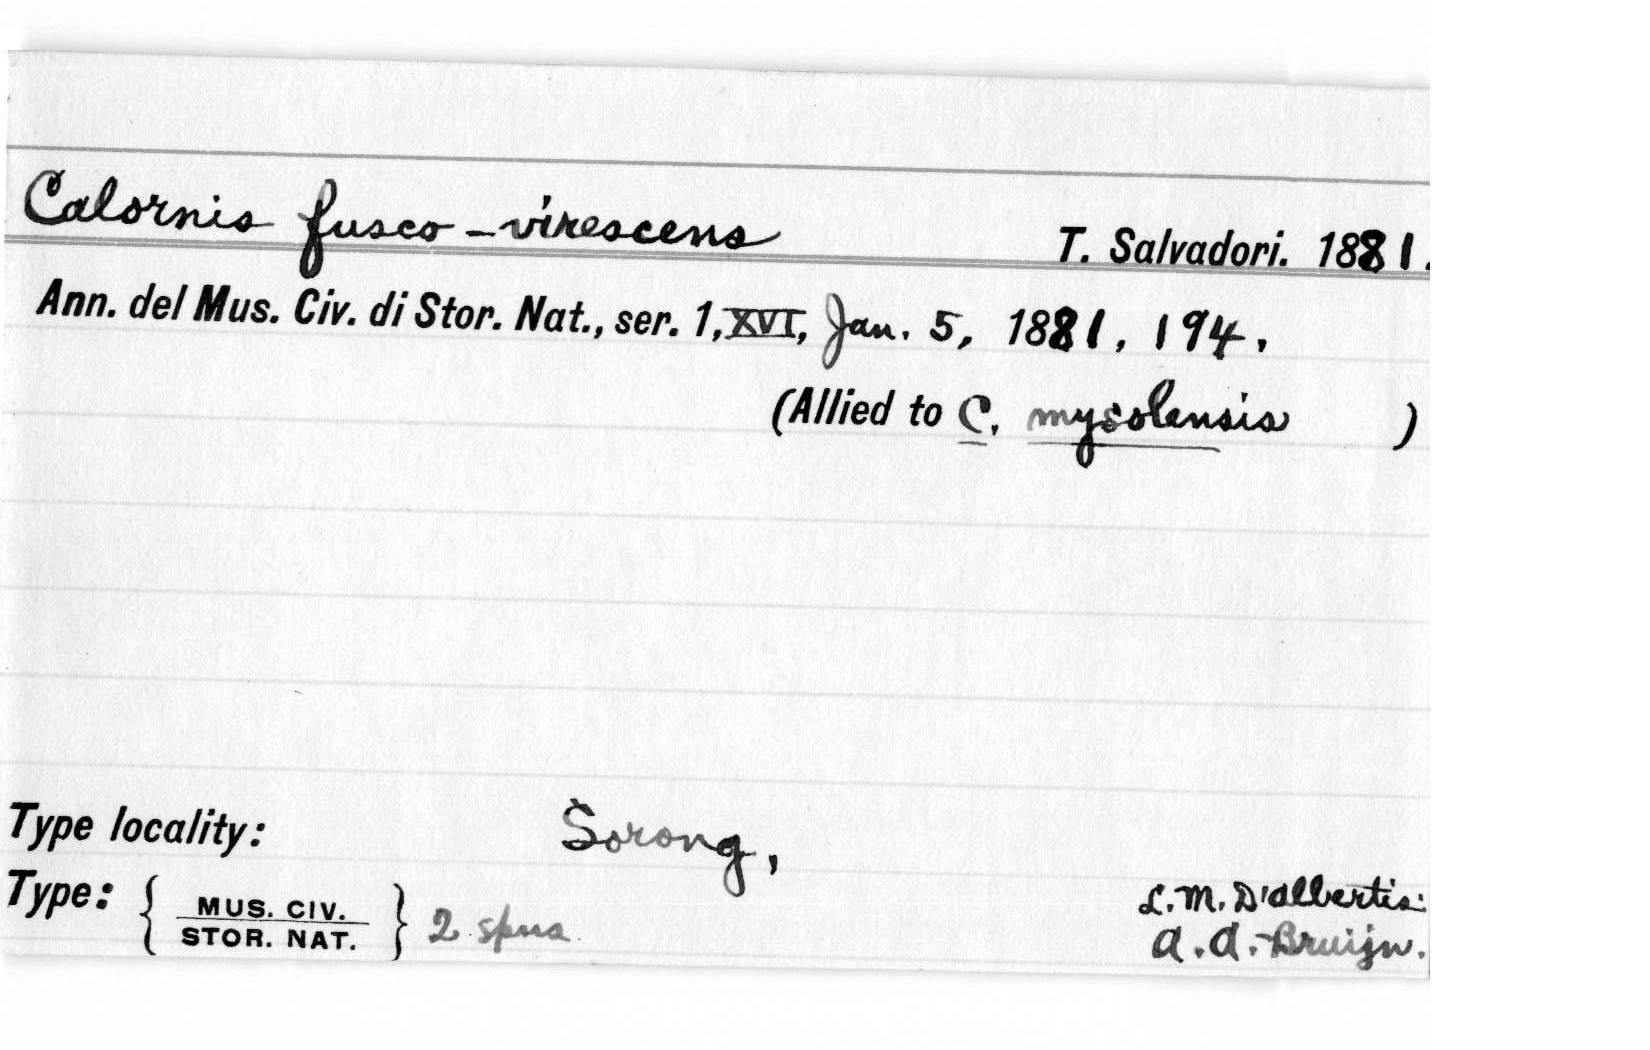 Calornis fusco-virescens T. Salvadori. 1881.
Ann. del Mus. Civ. di Stor. Nat., ser. 1, XVI, Jan. 5, 1881, 194.
(Allied to C. mysolensis )
Type locality: Sorong,
Type: { MUS. CIV. / STOR. NAT. } 2 spns L. M. D'Albertis:
A. A. Bruijn.